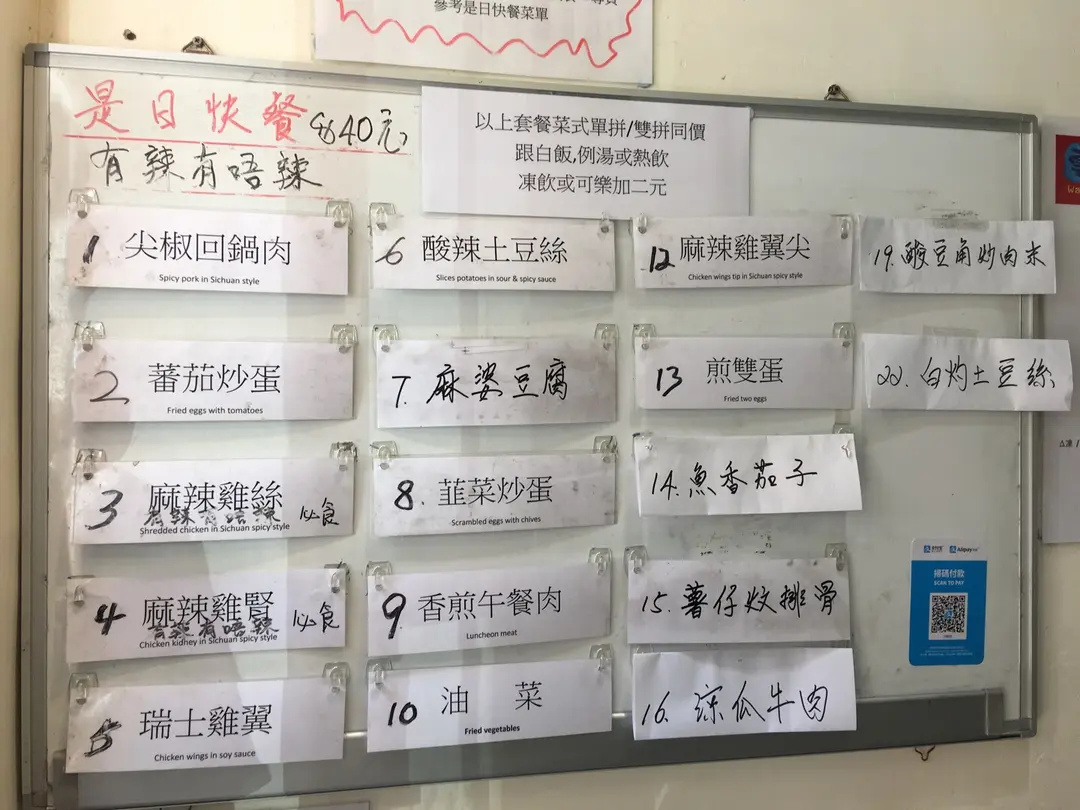 參考是日快餐菜單
是日快餐 $40元
有辣有唔辣
以上套餐菜式單拼/雙拼同價
跟白飯,例湯或熱飲
凍飲或可樂加二元
1 尖椒回鍋肉
Spicy pork in Sichuan style
2 蕃茄炒蛋
Fried eggs with tomatoes
3 麻辣雞絲
有辣有唔辣 必食
Shredded chicken in Sichuan spicy style
4 麻辣雞腎
有辣有唔辣 必食
Chicken kidney in Sichuan spicy style
5 瑞士雞翼
Chicken wings in soy sauce
6 酸辣土豆絲
Slices potatoes in sour & spicy sauce
7. 麻婆豆腐
8. 韮菜炒蛋
Scrambled eggs with chives
9 香煎午餐肉
Luncheon meat
10 油 菜
Fried vegetables
12 麻辣雞翼尖
Chicken wings tip in Sichuan spicy style
13 煎雙蛋
Fried two eggs
14. 魚香茄子
15. 薯仔炆排骨
16. 涼瓜牛肉
19. 酸豆角炒肉末
22. 白灼土豆絲
支付宝 Alipay
掃碼付款
SCAN TO PAY